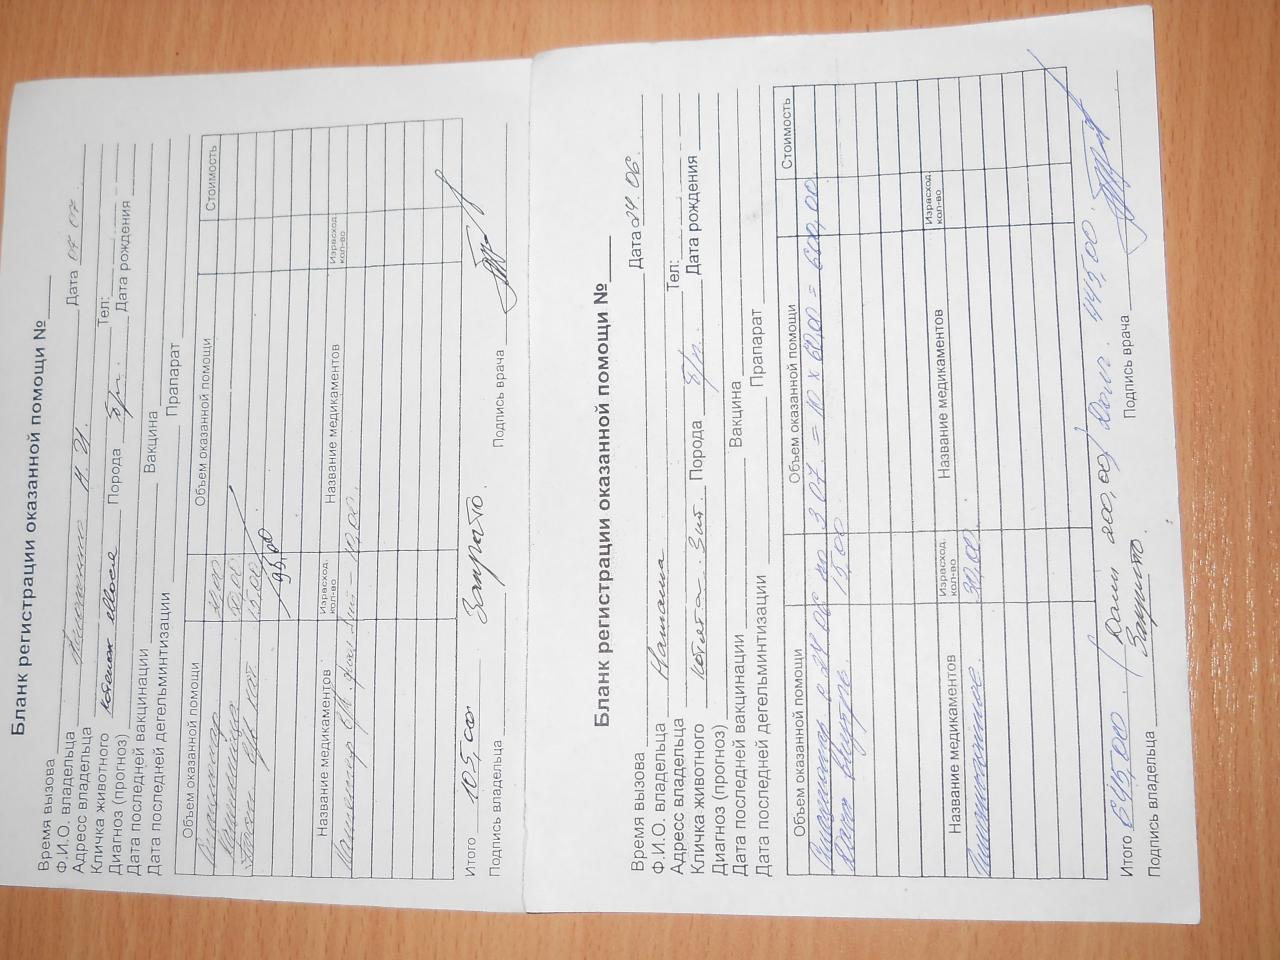 Бланк регистрации оказанной помощи №
Время вызова
Ф.И.О. владельца Дата 04 07
Адресс владельца
Кличка животного котенок Порода б/п. Тел:
Диагноз (прогноз) Дата рождения
Дата последней вакцинации Вакцина
Дата последней дегельминтизации Прапарат
Объем оказанной помощи Объем оказанной помощи Стоимость
50,00
15,00
95,00
Название медикаментов Израсход. кол-во Название медикаментов Израсход кол-во
10,00
Итого 105,00 Закрыто.
Подпись владельца Подпись врача
Бланк регистрации оказанной помощи №
Время вызова Дата 24.06.
Ф.И.О. владельца Наташа
Адресс владельца Тел:
Кличка животного котята 3шт. Порода б/п. Дата рождения
Диагноз (прогноз)
Дата последней вакцинации Вакцина
Дата последней дегельминтизации Прапарат
Объем оказанной помощи Объем оказанной помощи Стоимость
с 24 06 по 3 07. = 10 x 60,00 = 600,00
15,00
Название медикаментов Израсход. кол-во Название медикаментов Израсход кол-во
30,00
Итого 645,00. (Дали 200,00) Долг 445,00.
Закрыто
Подпись владельца Подпись врача